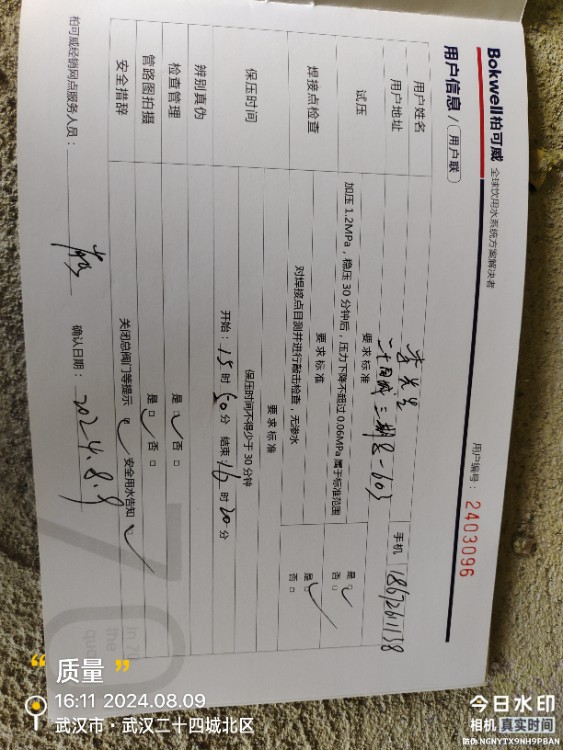 Bokwell柏可威 全球饮用水系统方案解决者
用户信息 / 用户联
用户编号: 2403096
用户姓名 李先生 手机
用户地址 二十四城三期2-603
试压 要求标准
加压 1.2MPa,稳压 30 分钟后,压力下降不超过 0.06MPa 属于标准范围 是□ ✓ 否□
焊接点检查 要求标准
对焊接点目测并进行敲击检查,无渗水 是□ ✓ 否□
保压时间 要求标准
保压时间不得少于 30 分钟
开始: 15 时 50 分 结束 16 时 20 分
辨别真伪 是□ ✓ 否□
检查管理
管路图拍摄 是□ ✓ 否□
安全措辞 关闭总阀门等提示 ✓ 安全用水告知 ✓
柏可威经销网点服务人员:
确认日期: 2024.8.9
“ 质量 ”
16:11 2024.08.09
武汉市·武汉二十四城北区
今日水印
相机 真实时间
防伪 NGNYTX9NH9PBAN